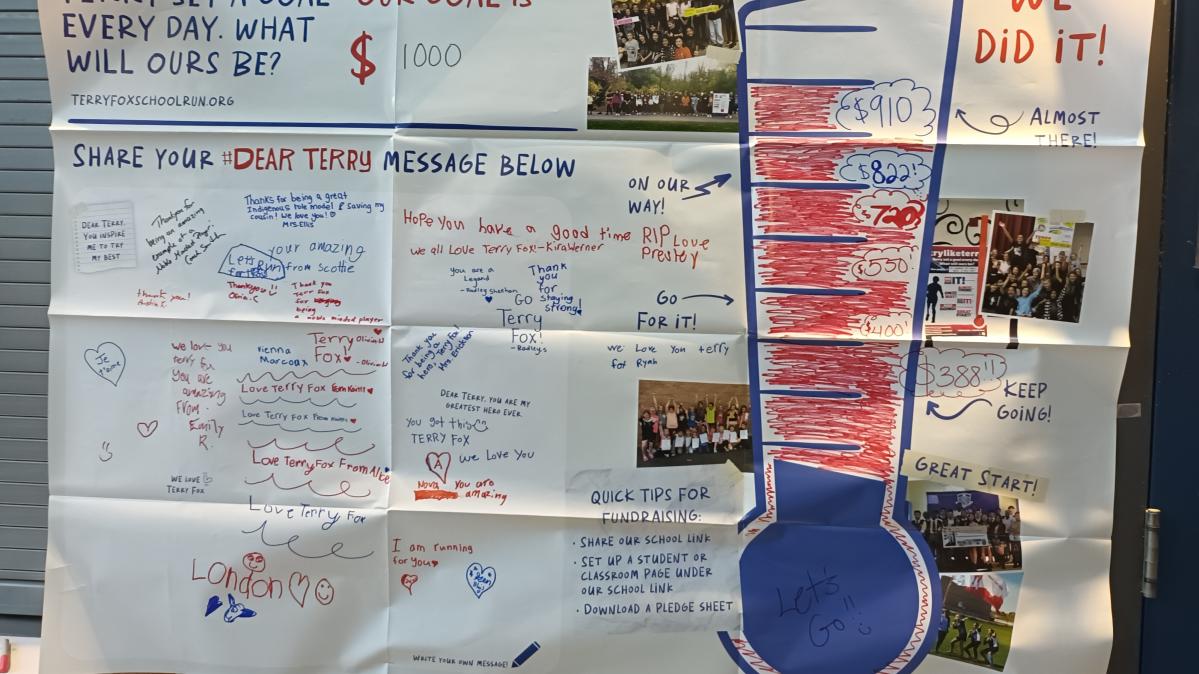 EVERY DAY. WHAT
WILL OURS BE?
OUR GOAL IS
$ 1000
TERRYFOXSCHOOLRUN.ORG
WE
DiD iT!
$910
ALMOST
THERE!
SHARE YOUR #DEAR TERRY MESSAGE BELOW
DEAR TERRY,
YOU INSPIRE
ME TO TRY
MY BEST
Thank you for
being an amazing
example of a
Thanks for being a great
Indigenous role model & saving my
cousin! We love you!
Mrs Ellis
your amazing
from Scottie
Let's run
Thankyou!
Olivia.C
Thank you
Terr Fox
for
being
noble minded player
thank you!
Hope you have a good time
we all Love Terry Fox-Kira Werner
RIP Love
Presley
you are a
Legend
Thank
you
for
staying
strong!
GO
Terry
Fox!
-Radleys
ON OUR
WAY!
$822!
$720!
$550!
GO
FOR IT!
$400!
Je
t'aime
we love you
terry fox
You are
amazing
From
Emily
R.
Vienna
Marcoux
Terry
Fox
Love Terry Fox
Love Terry Fox From
Love Terry Fox From
Love Terry Fox
Thank you
for being a
hero, Terry Fox!
Mrs. Erickson
we Love You terry
fot Ryah
DEAR TERRY, YOU ARE MY
GREATEST HERO EVER.
You got this
TERRY FOX
A
we Love You
Nova
You are
amazing
WE LOVE
TERRY FOX
$388!!
KEEP
GOING!
GREAT START!
QUICK TIPS FOR
FUNDRAISING:
• SHARE OUR SCHOOL LINK
• SET UP A STUDENT OR
CLASSROOM PAGE UNDER
OUR SCHOOL LINK
• DOWNLOAD A PLEDGE SHEET
London
I am running
for you
Let's
Go!!
WRITE YOUR OWN MESSAGE!